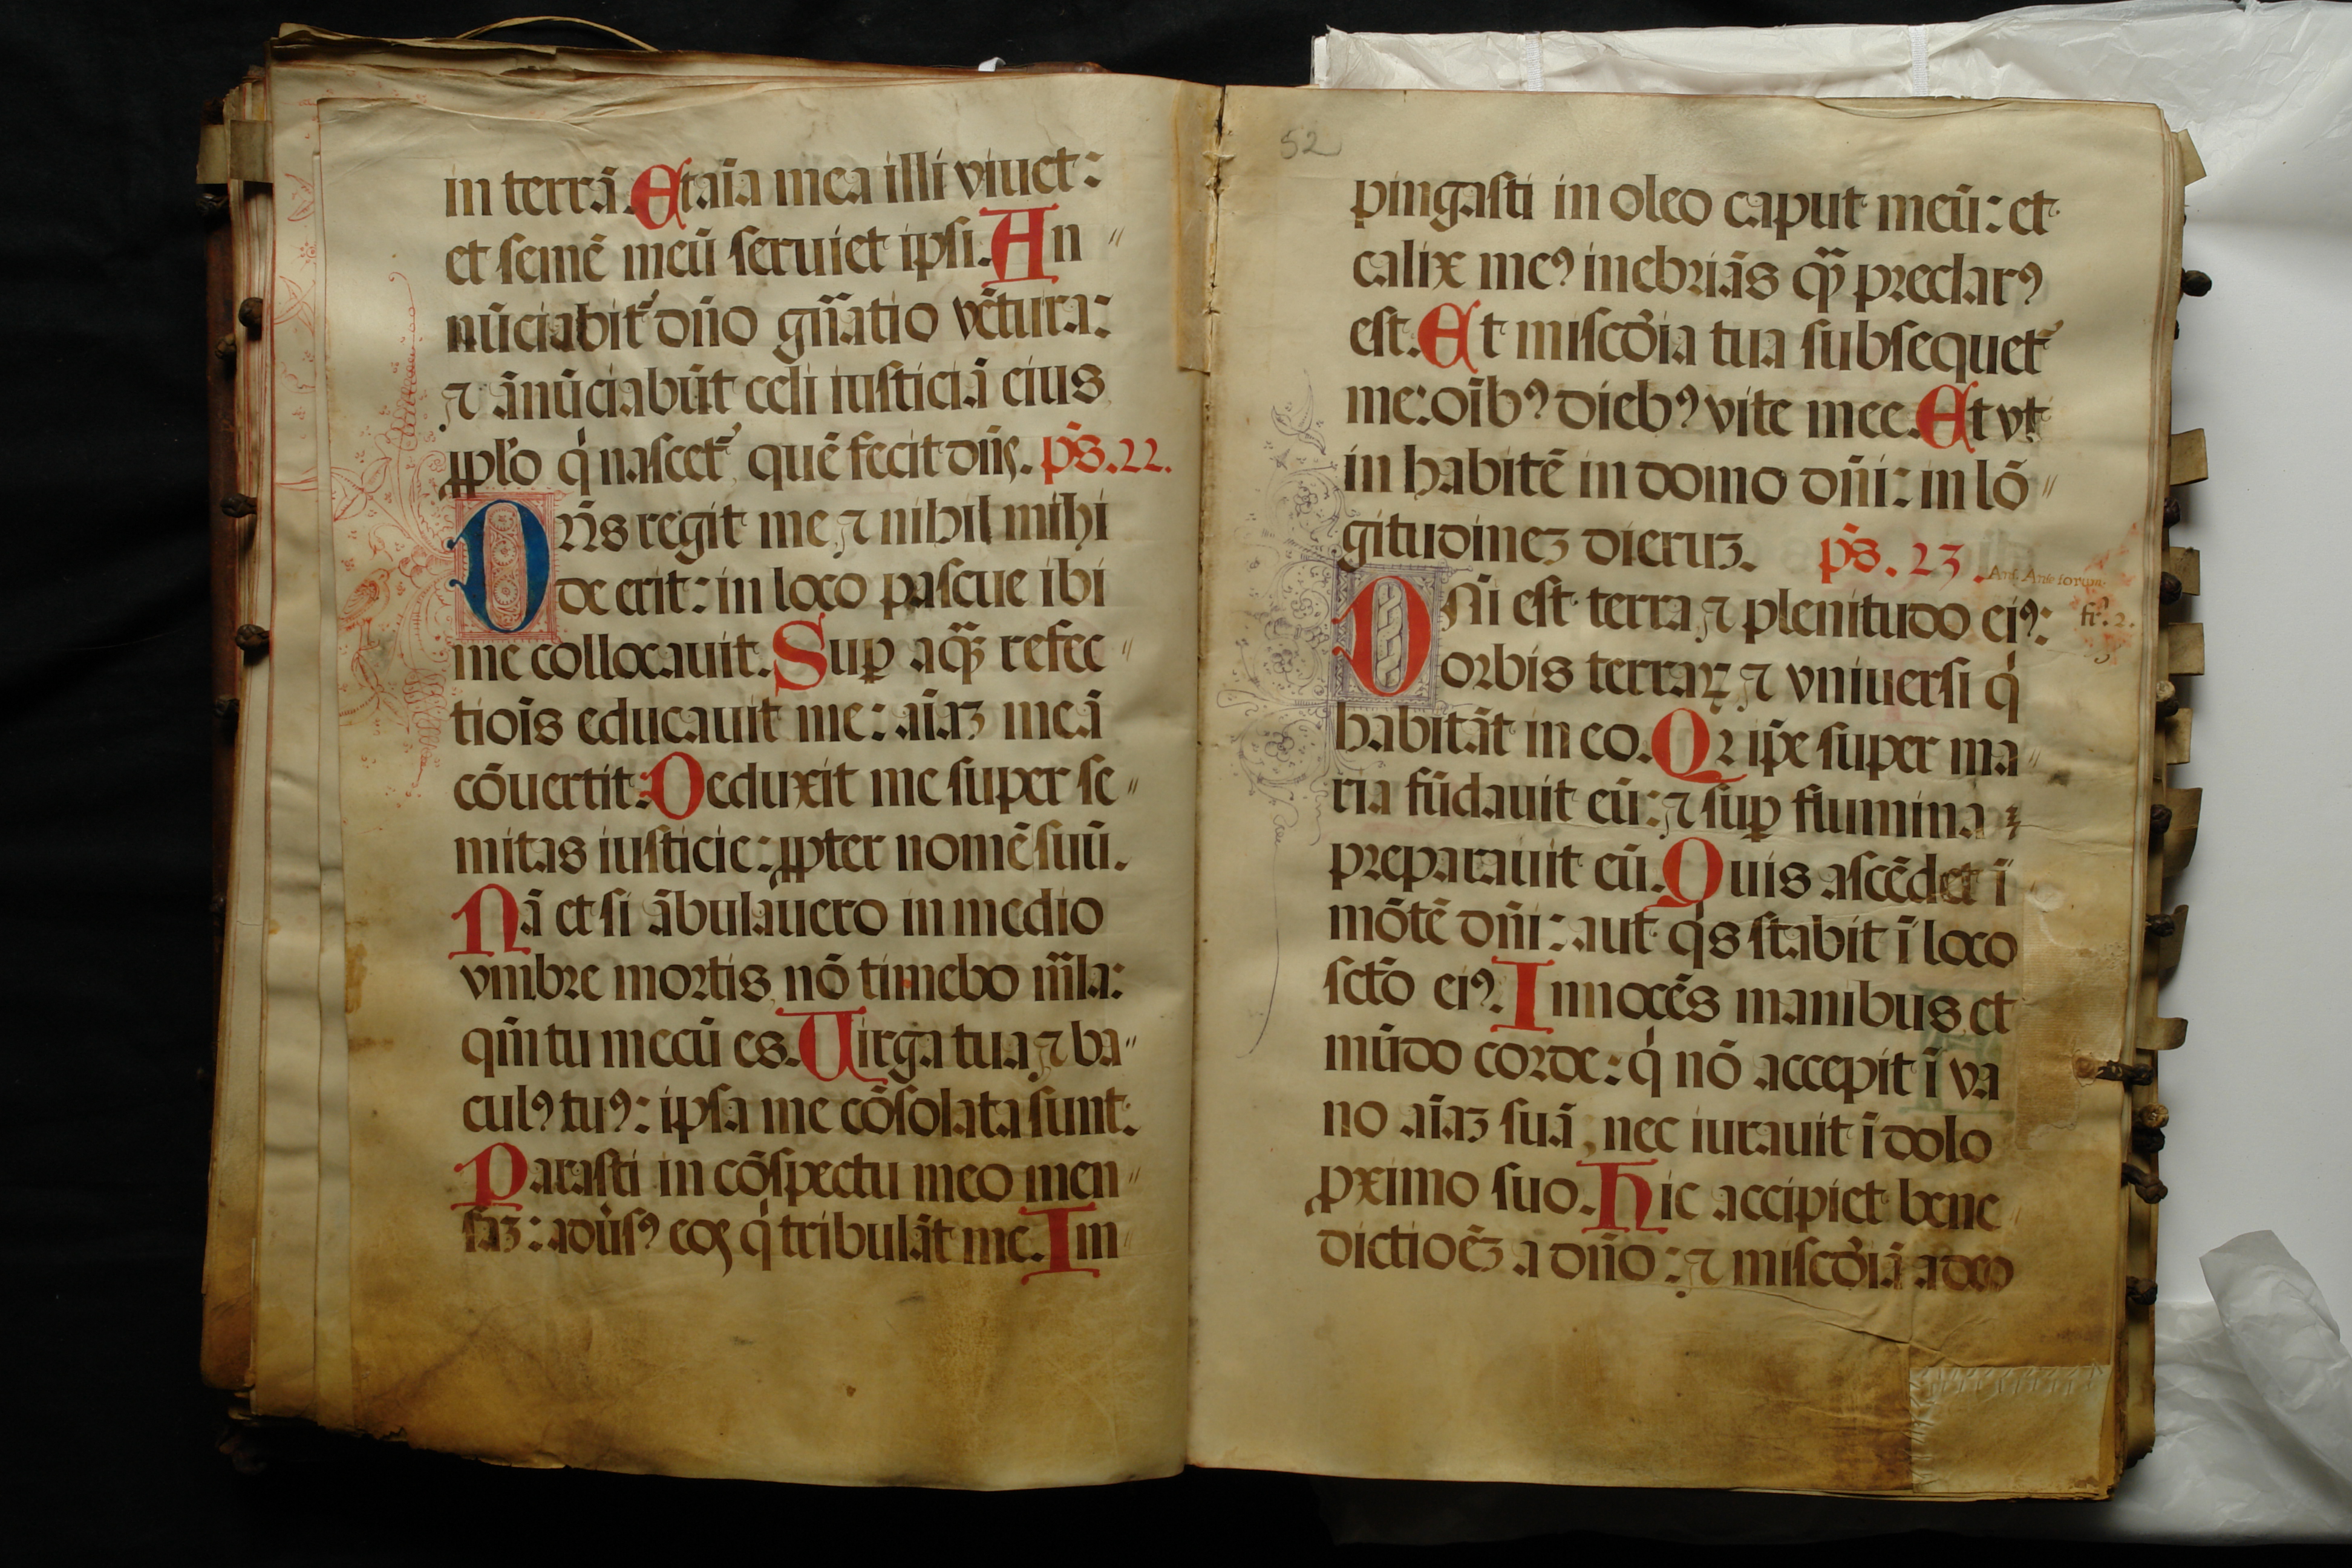 in terrā. Et aīa mea illi viuet:
et semē meū seruiet ipsi. An〃
nūciabit᷑ dn̄o gn̄atio vētura:
⁊ ānūciabūt celi iusticiā eius
ꝓplo qͥ nascet᷑, quē fecit dn̄s. ps̄. 22.
Dn̄s regit me, ⁊ nihil mihi
de erit: in loco pascue ibi
me collocauit. Suꝑ aqͣꝫ refec〃
tiōis educauit me: aīaꝫ meā
cōuertit: Deduxit me super se〃
mitas iusticie: ꝓpter nomē suū.
Nā et si ābulauero in medio
vmbre mortis, nō timebo mͣla:
qm̄ tu mecū es. Uirga tua, ⁊ ba〃
culꝰ tuꝰ: ipsa me cōsolata sunt.
Parasti in cōspectu meo men〃
saꝫ: aduͥsꝰ eos qͥ tribulāt me. Im〃
52
pingasti in oleo caput meū: et
calix meꝰ inebriās qͣꝫ preclarꝰ
est. Et miscd̓ia tua subsequet᷑
me: oīb‍ꝰ diebꝰ vite mee. Et vt
in habitē in domo dn̄i: in lō〃
gitudineꝫ dieruꝫ. ps̄. 23.
Dn̄i est terra, ⁊ plenitudo eiꝰ:
orbis terraꝝ, ⁊ vniuersi qͥ
habitāt in eo. Qꝛ ip̄e super ma〃
ria fūdauit eū: ⁊ suꝑ flumina
preparauit eū. Quis ascēdet ī
mōtē dn̄i: aut qͥs stabit ī loco
sctō eiꝰ. Innocēs manibus, et
mūdo corde: qͥ nō accepit ī va
no aīaꝫ suā, nec iurauit ī dolo
ꝓximo suo. Hic accipiet bene〃
dictioēꝫ a dn̄o: ⁊ miscd̓iā a deo